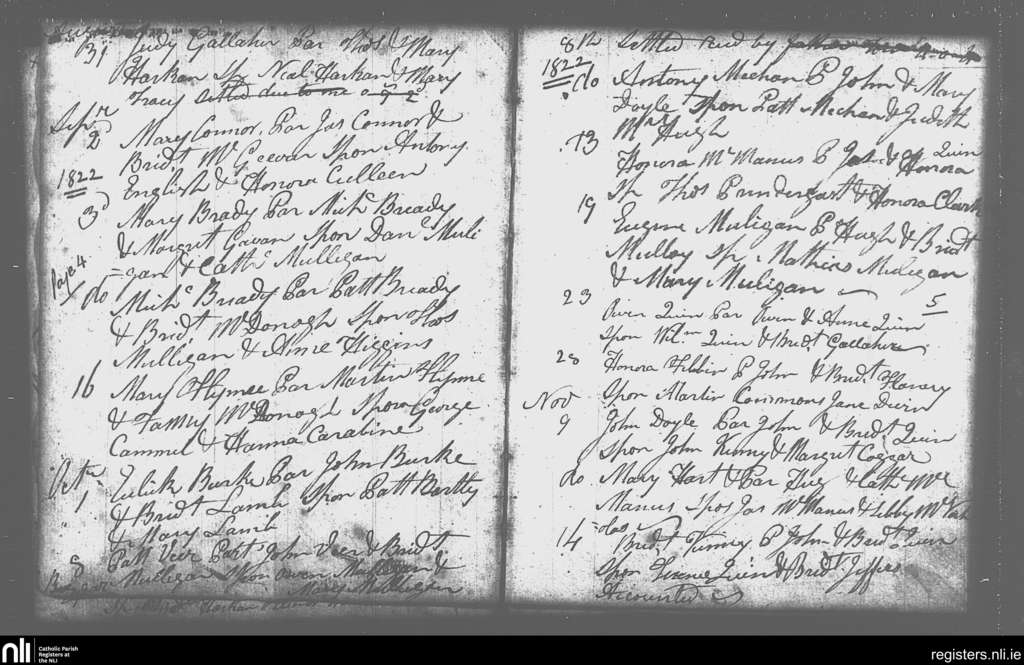 31 Judy Gallaher Par Thos & Mary
Harkan Sp Neal Harkan & Mary
Tracy settled due to me
Sepr
2 Mary Connor. Par Jas Connor &
Bridt McGeevar Spon Antony
1822 English & Honora Culleen
3d Mary Brady Par Michl Bready
& Margret Gavan Spon Danl Muli
=gan & Cathe Mulligan
Page 4
do Michl Bready Par Patt Bready
& Bridt McDonogh Spon Thos
Mulligan & Anne Higgins
16 Mary Flynne Par Martin Flynne
& Fanny McDonogh Spon George
Cammel & Hanna Carabine
Octr
1 Ulick Burke Par John Burke
& Bridt Lamb Spon Patt Bertly
& Mary Lamb
8 Patt Veer Part John Veer & Bridt
Mulligan Spon Owen &
Mary Mulligan
8th settled by
1822
do Antony Meehan P John & Mary
Doyle Spon Patt Mechan & Judith
McHugh
13 Honora McManus P & Honora Quin
Sp Thos Prindergast & Honora Clark
19 Eugene Muligan P Hugh & Bridt
Mulloy Sp. Mathias Muligan
& Mary Muligan
5
23 Owen Quin Par Owen & Anne Quin
Spon Wilm Quin & Bridt Gallaher
28 Honora P John & Bridt
Spon Martin Commons Jane
Nov
9 John Doyle Par John & Bridt Quin
Spon John & Margret
do Mary Hart Par & Cathe Mc
Manus Spos Jas McManus & Libby Mc
14 Bridt P John & Bridt Quin
Spon Quin & Bridt Jeffers
Accounted
nli
Catholic Parish
Registers at
the NLI
registers.nli.ie